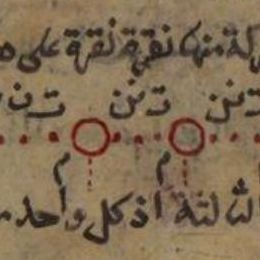 كة منها نقرة نقرة على
تنن تنن تن
م م
الثلثة اذ كل واحد